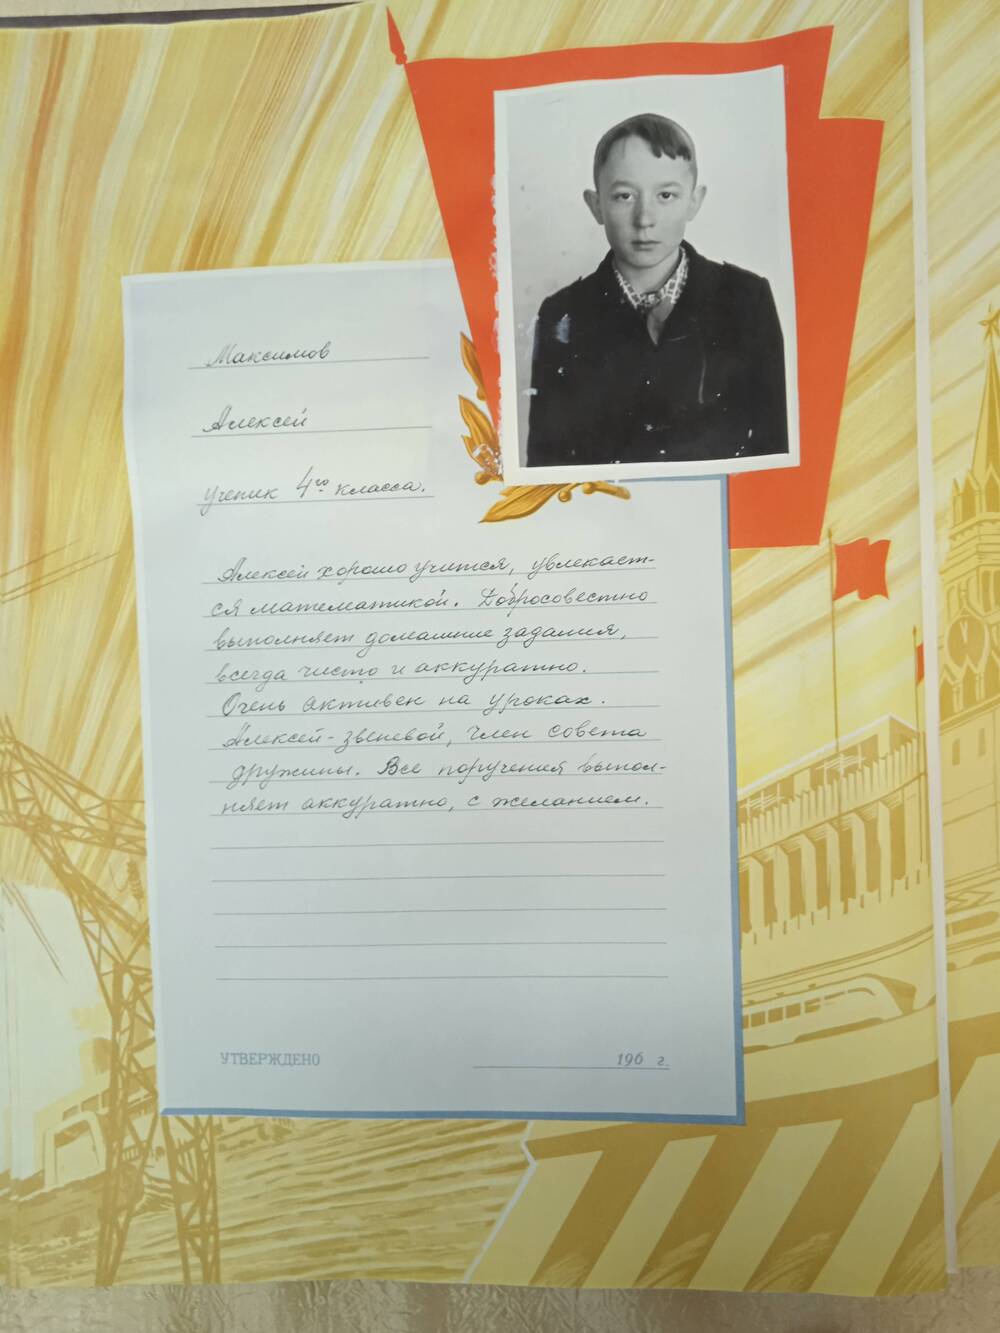 Максимов
Алексей
ученик 4го класса.
Алексей хорошо учится, увлекает-
ся математикой. Добросовестно
выполняет домашние задания,
всегда чисто и аккуратно.
Очень активен на уроках.
Алексей-звеневой, член совета
дружины. Все поручения выпол-
няет аккуратно, с желанием.
УТВЕРЖДЕНО 196 г.